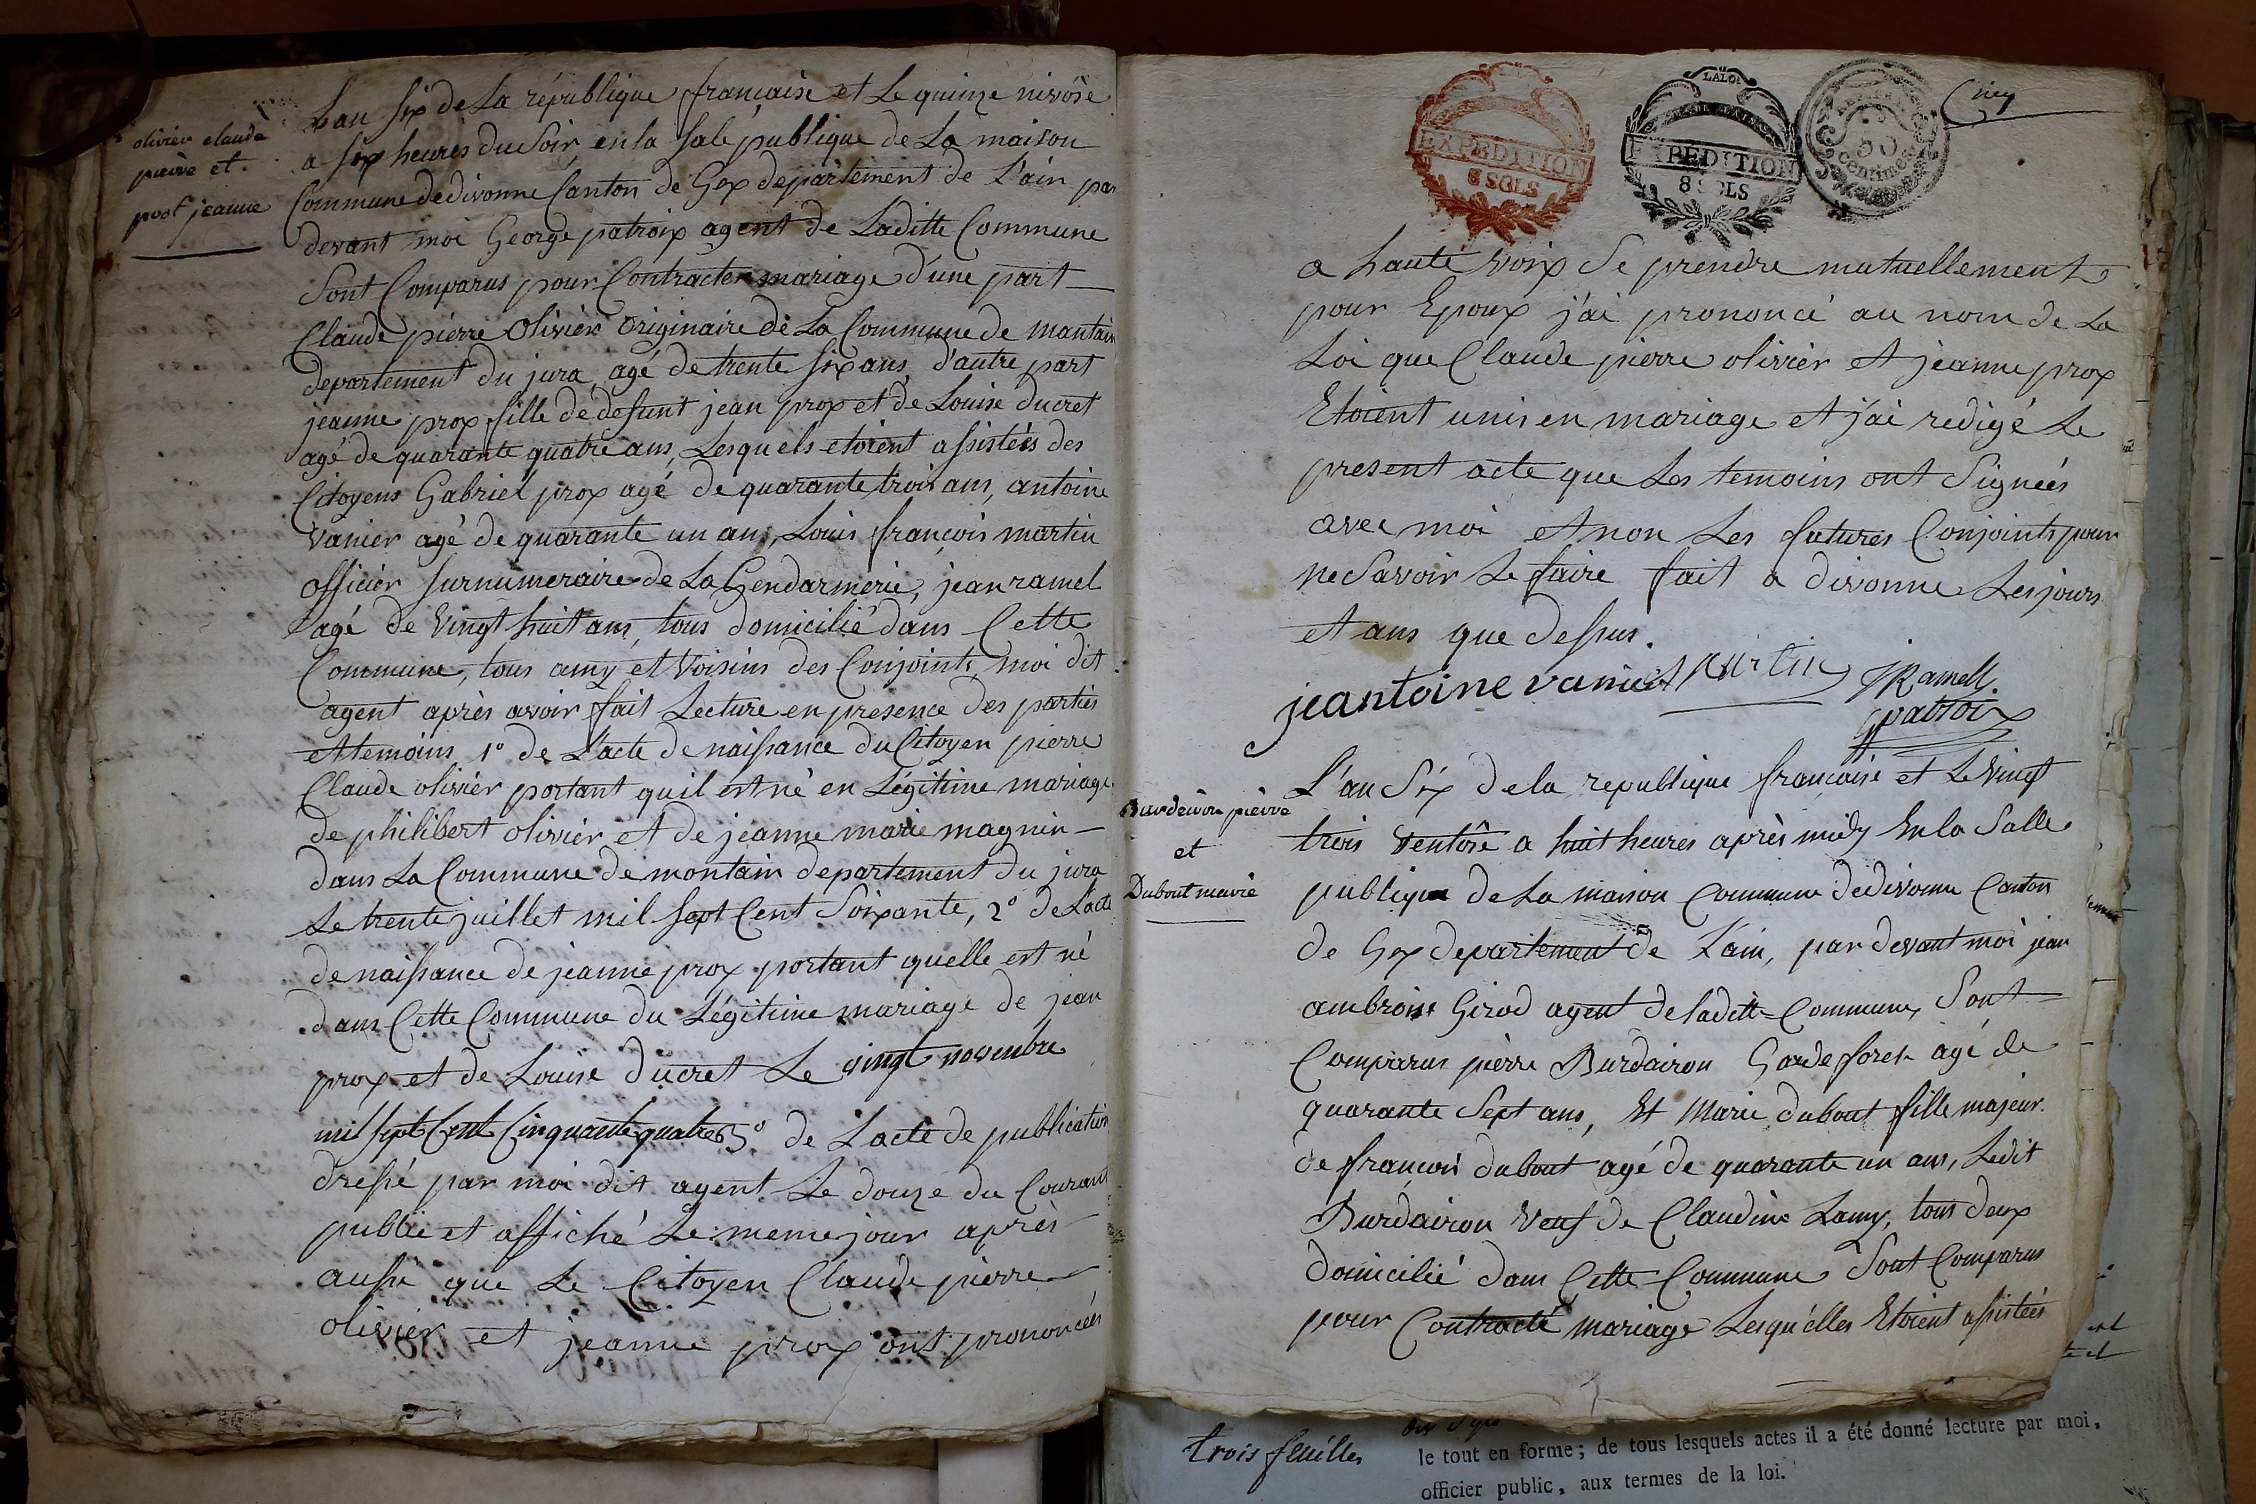 olivier claude
pierre et
prox jeanne
L'an six de La république française et Le quinze nivôse
a six heures du Soir en la Sale publique de La maison
Commune de divonne Canton de Gex departement de L'ain par
devant moi George patroix agent de Laditte Commune
Sont Comparus pour Contracter mariage d'une part
Claude pierre olivier originaire de La Commune de montain
departement du jura, agé de trente six ans, d'autre part
jeanne prox fille de defunt jean prox et de Louise ducret
agé de quarante quatre ans, Lesquels etoient assistées des
Citoyens Gabriel prox agé de quarante trois ans, antoine
vanier agé de quarante un ans, Louis françois martin
officier surnumeraire de La Gendarmerie, jean ramel
agé de vingt huit ans, tous domicilié dans Cette
Commune, tous amy et voisins des Conjoints, moi dit
agent après avoir fait Lecture en presence des parties
et temoins 1° de L'acte de naissance du Citoyen pierre
Claude olivier portant quil est né en Légitime mariage
de philibert olivier et de jeanne marie magnin
dans La Commune de montain departement du jura
Le trente juillet mil sept Cent Soixante, 2° de L'acte
de naissance de jeanne prox portant quelle est né
dans Cette Commune du Légitime mariage de jean
prox et de Louise ducret Le vingt novembre
mil sept Cent Cinquante quatre 3° de L'acte de publication
dressé par moi dit agent Le douze du Courant
publié et affiché Le meme jour après
aussi que Le Citoyen Claude pierre
olivier et jeanne prox ont prononcées
EXPEDITION
8 SOLS
LALOI
EXPEDITION
8 SOLS
centimes
Cinq
a haute voix Se prendre mutuellement
pour Epoux j'ai prononcé au nom de La
Loi que Claude pierre olivier et jeanne prox
Etoient unis en mariage et j'ai redigé Le
present acte que Les temoins ont Signées
avec moi et non Les futures Conjoints pour
ne Savoir Le faire fait a divonne Les jours
et ans que dessus.
jeantoine vanier martin JRamell
gpatroix
Burdeiron pierre
et
Dubout marie
L'an Six de la republique française et Le vingt
trois ventôse a huit heures après midy En la Salle
publique de La maison Commune de divonne Canton
de Gex departement de L'ain, par devant moi jean
ambroise Girod agent de laditte Commune, Sont
Comparus pierre Burdairon Garde forest agé de
quarante Sept ans, Et Marie dubout fille majeur
de françois dubout agé de quarante un ans, Ledit
Burdairon veuf de Claudine Lamy, tous deux
domicilié dans Cette Commune Sont Comparus
pour Contracté mariage Lesquélles Etoient assistées
trois feuilles
le tout en forme; de tous lesquels actes il a été donné lecture par moi,
officier public, aux termes de la loi.